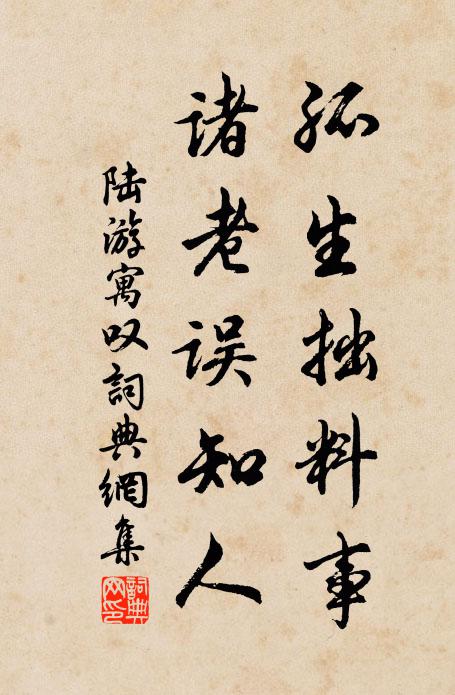 孤生拙料事
诸老误知人
陆游寓叹詞典網集
詞典网印